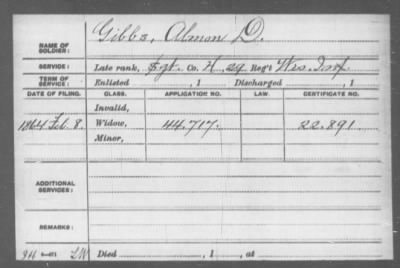 Gibbs, Almon D.
NAME OF SOLDIER:
SERVICE: Late rank, Sgt. Co. H, 29 Reg't Wis. Inf
TERM OF SERVICE: Enlisted , 1 Discharged , 1
DATE OF FILING. CLASS. APPLICATION NO. LAW. CERTIFICATE NO.
Invalid,
1864 Feb. 8. Widow, 44.717. 22.891.
Minor,
ADDITIONAL SERVICES:
REMARKS:
Died , 1 , at